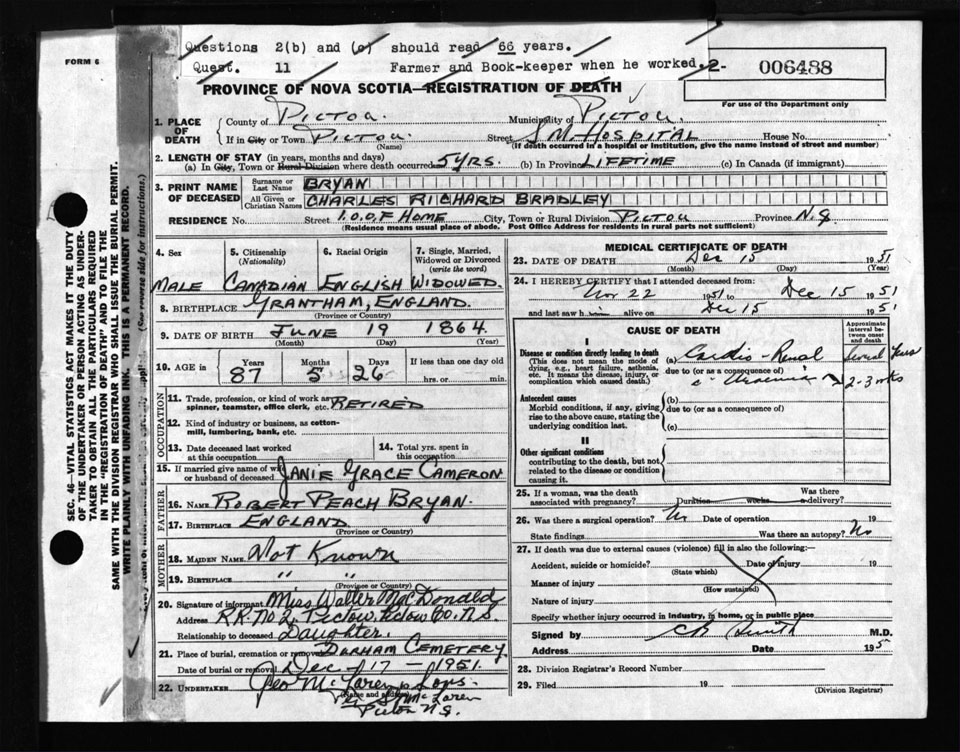 Questions 2(b) and (c) should read 66 years.
Quest. 11 Farmer and Book-keeper when he worked.
2- 006488
FORM 6
PROVINCE OF NOVA SCOTIA—REGISTRATION OF DEATH
For use of the Department only
1. PLACE OF DEATH
County of Pictou. Municipality of Pictou.
If in City or Town Pictou. Street S M. HOSPITAL House No.
(Name) (If death occurred in a hospital or institution, give the name instead of street and number)
2. LENGTH OF STAY (in years, months and days)
(a) In City, Town or Rural Division where death occurred 5 YRS. (b) In Province LIFETIME (c) In Canada (if immigrant)
3. PRINT NAME OF DECEASED
Surname or Last Name BRYAN
All Given or Christian Names CHARLES RICHARD BRADLEY
RESIDENCE No. Street I.O.O.F HOME City, Town or Rural Division PICTOU Province N.S.
(Residence means usual place of abode. Post Office Address for residents in rural parts not sufficient)
4. Sex 5. Citizenship (Nationality) 6. Racial Origin 7. Single, Married, Widowed or Divorced (write the word)
MALE CANADIAN ENGLISH WIDOWED.
8. BIRTHPLACE GRANTHAM, ENGLAND.
(Province or Country)
9. DATE OF BIRTH JUNE 19 1864.
(Month) (Day) (Year)
10. AGE in Years Months Days If less than one day old
87 5 26 hrs. or min.
OCCUPATION
11. Trade, profession, or kind of work as spinner, teamster, office clerk, etc. RETIRED
12. Kind of industry or business, as cotton-mill, lumbering, bank, etc.
13. Date deceased last worked at this occupation
14. Total yrs. spent in this occupation
15. If married give name of wife or husband of deceased JANIE GRACE CAMERON
FATHER
16. NAME ROBERT PEACH BRYAN.
17. BIRTHPLACE ENGLAND.
(Province or Country)
MOTHER
18. MAIDEN NAME Not Known
19. BIRTHPLACE " "
(Province or Country)
20. Signature of informant Miss Walter MacDonald
Address R.R. No 2, Pictou, Pictou Co. N.S.
Relationship to deceased Daughter.
21. Place of burial, cremation or removal DURHAM CEMETERY
Date of burial or removal Dec 17 - 1951.
22. UNDERTAKER Geo McLaren & Sons.
(Name and address)
McLaren
Pictou N.S.
MEDICAL CERTIFICATE OF DEATH
23. DATE OF DEATH Dec 15 1951
(Month) (Day) (Year)
24. I HEREBY CERTIFY that I attended deceased from:
Nov 22 1951 to Dec 15 1951
and last saw h im alive on Dec 15 1951
CAUSE OF DEATH
Approximate interval between onset and death
I
Disease or condition directly leading to death
(This does not mean the mode of dying, e.g., heart failure, asthenia, etc. It means the disease, injury, or complication which caused death.)
(a) Cardio-Renal Several Years
due to (or as a consequence of)
c Uraemia 2-3 wks
Antecedent causes
Morbid conditions, if any, giving rise to the above cause, stating the underlying condition last.
(b)
due to (or as a consequence of)
(c)
II
Other significant conditions
contributing to the death, but not related to the disease or condition causing it.
25. If a woman, was the death associated with pregnancy? Duration weeks Was there delivery?
26. Was there a surgical operation? No Date of operation 19
State findings Was there an autopsy? No
27. If death was due to external causes (violence) fill in also the following:—
Accident, suicide or homicide? Date of injury 19
(State which)
Manner of injury
(How sustained)
Nature of injury
Specify whether injury occurred in industry, in home, or in public place
Signed by C B Smith M.D.
Address Date 195
28. Division Registrar's Record Number
29. Filed 19
(Division Registrar)
SEC. 46—VITAL STATISTICS ACT MAKES IT THE DUTY
OF THE UNDERTAKER OR PERSON ACTING AS UNDER-
TAKER TO OBTAIN ALL THE PARTICULARS REQUIRED
IN THE "REGISTRATION OF DEATH" AND TO FILE THE
SAME WITH THE DIVISION REGISTRAR WHO SHALL ISSUE THE BURIAL PERMIT.
WRITE PLAINLY WITH UNFADING INK. THIS IS A PERMANENT RECORD.
(See reverse side for instructions.)